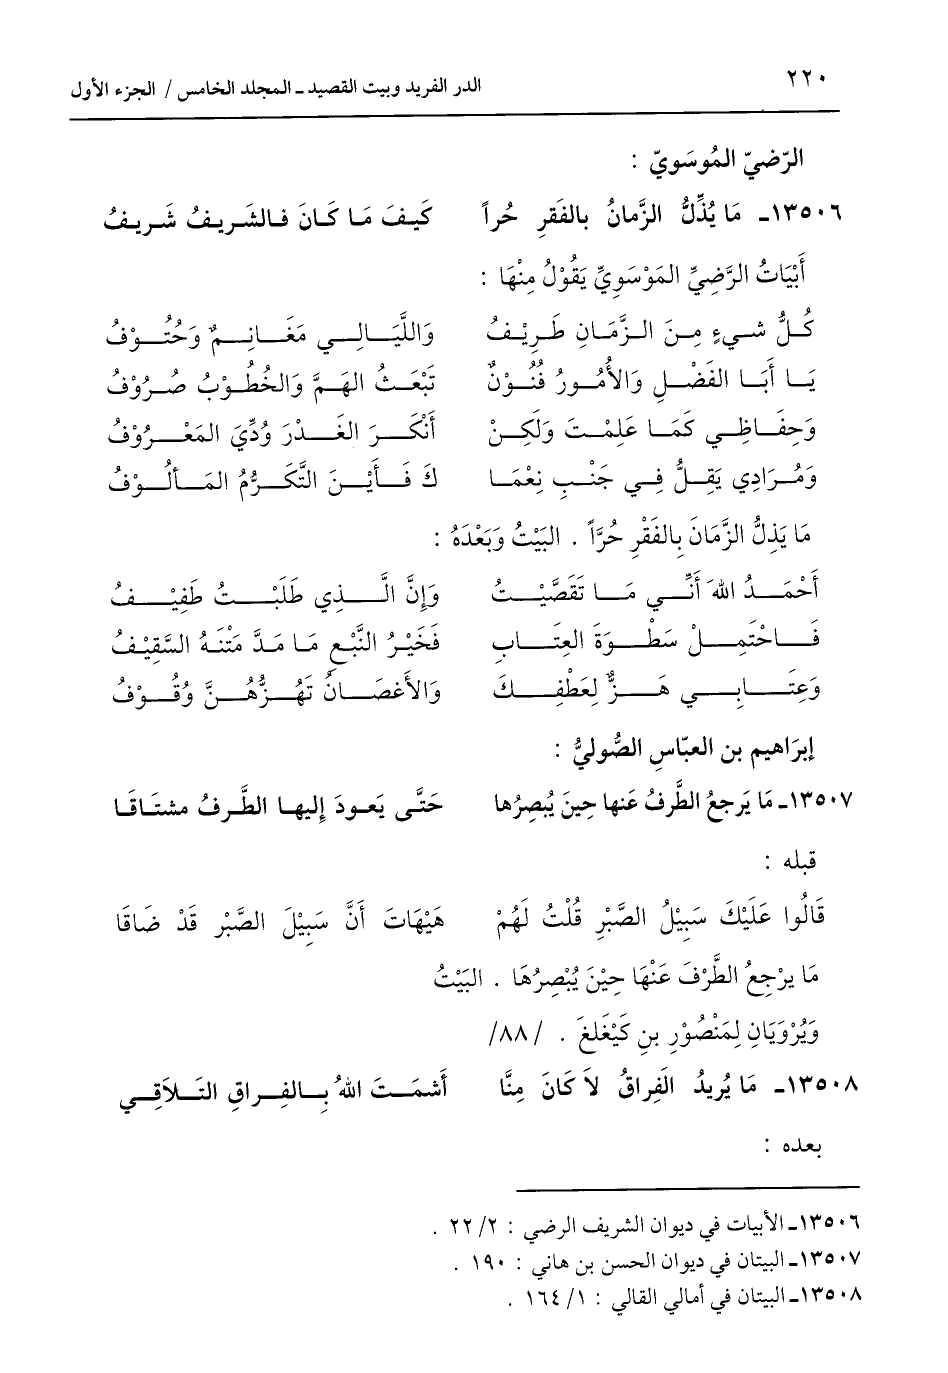 ٢٢٠ الدر الفريد وبيت القصيد ـ المجلد الخامس / الجزء الأول
الرّضيّ المُوسَويّ :
١٣٥٠٦ـ مَا يُذِّلُّ الزَّمانُ بالفَقرِ حُراً كَيفَ مَا كَانَ فالشَريفُ شَريفُ
أَبْيَاتُ الرَّضِيِّ المَوْسَوِيِّ يَقُوْلُ مِنْهَا :
كُلُّ شيءٍ مِنَ الزَّمَانِ طَرِيْفُ وَاللَّيَالِي مَغَانِمٌ وَحُتُوْفُ
يَا أَبَا الفَضْلِ وَالأُمُورُ فُنُوْنٌ تَبْعَثُ الهَمَّ وَالخُطُوْبُ صُرُوْفُ
وَحِفَاظِي كَمَا عَلِمْتَ وَلَكِنْ أَنْكَرَ الغَدْرَ وُدِّيَ المَعْرُوْفُ
وَمُرَادِي يَقِلُّ فِي جَنْبِ نِعْمَا كَ فَأَيْنَ التَّكَرُّمُ المَألُوْفُ
مَا يَذِلُّ الزَّمَانَ بِالفَقْرِ حُرَّاً . البَيْتُ وَبَعْدَهُ :
أَحْمَدُ اللهَ أَنِّي مَا تَقَصَّيْتُ وَإِنَّ الَّذِي طَلَبْتُ طَفِيْفُ
فَاحْتَمِلْ سَطْوَةَ العِتَابِ فَخَيْرُ النَّبْعِ مَا مَدَّ مَتْنَهُ السَّقِيْفُ
وَعِتَابِي هَزٌّ لِعَطْفِكَ وَالأَغصَانُ تَهُزُّهُنَّ وُقُوْفُ
إبرَاهيم بن العبّاسِ الصُّوليُّ :
١٣٥٠٧ـ مَا يَرجعُ الطَّرفُ عَنها حِينَ يُبصِرُها حَتَّى يَعودَ إليها الطَّرفُ مشتَاقَا
قبله :
قَالُوا عَلَيْكَ سَبِيْلُ الصَّبْرِ قُلْتُ لَهُمْ هَيْهَاتَ أَنَّ سَبِيْلَ الصَّبْرِ قَدْ ضَاقَا
مَا يرْجِعُ الطَّرْفَ عَنْهَا حِيْنَ يُبْصِرُهَا . البَيْتُ
وَيُرْوَيَانِ لِمَنْصُوْرِ بنِ كَيْغَلغَ . /٨٨/
١٣٥٠٨ـ مَا يُريدُ الفِراقُ لاَ كَانَ مِنَّا أَشمَتَ اللهُ بِالفِراقِ التَلاَقِي
بعده :
١٣٥٠٦ـ الأبيات في ديوان الشريف الرضي : ٢/ ٢٢ .
١٣٥٠٧ـ البيتان في ديوان الحسن بن هاني : ١٩٠ .
١٣٥٠٨ـ البيتان في أمالي القالي : ١/ ١٦٤ .